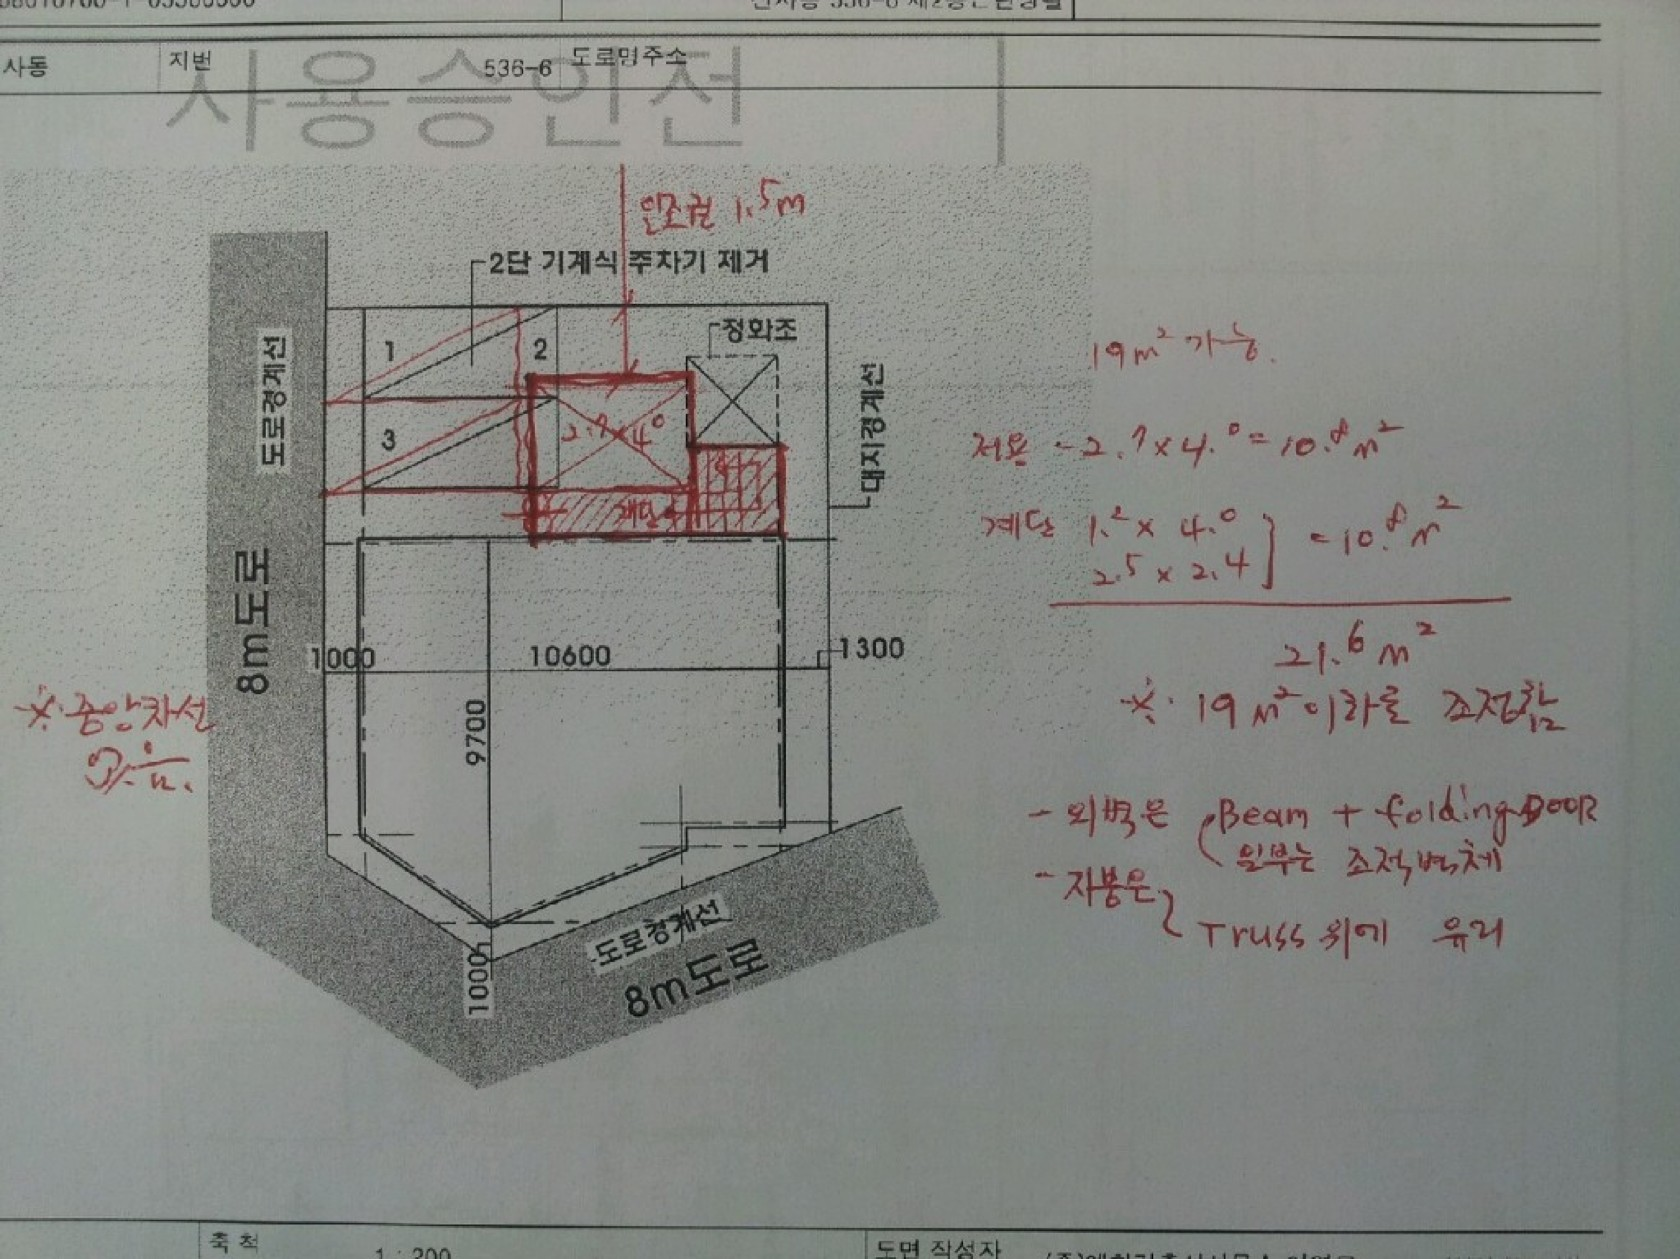 사동
지번
536-6
도로명주소
사용승인전
일조권 1.5m
2단 기계식 주차기 제거
정화조
1
2
3
2.7×4.0
계단
도로경계선
대지경계선
8m도로
1000
10600
1300
9700
1000
도로경계선
8m도로
※ 중앙차선
있음.
19m² 가능.
저용 - 2.7×4.0 = 10.8m²
계단 1.2 × 4.0
2.5 × 2.4
= 10.8m²
21.6m²
※ 19m² 이하로 조정함
- 외벽은 Beam + folding DOOR
일부는 조적벽체
- 지붕은
Truss 위에 유리
축 척
1 : 200
도면 작성자